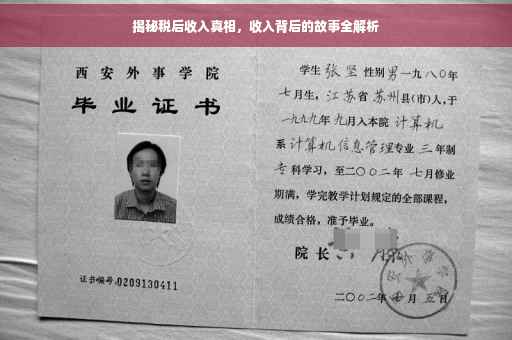 揭秘税后收入真相，收入背后的故事全解析
西安外事学院
毕业证书
证书编号:0209130411
学生 张坚 性别 男 一九八〇年
七月生，江苏省 苏州县(市)人，于
一九九九年 九月入本院 计算机
系 计算机信息管理专业 三 年制
专科学习，至二〇〇二年 七月修业
期满，学完教学计划规定的全部课程，
成绩合格，准予毕业。
院长
二〇〇二年 月 五日